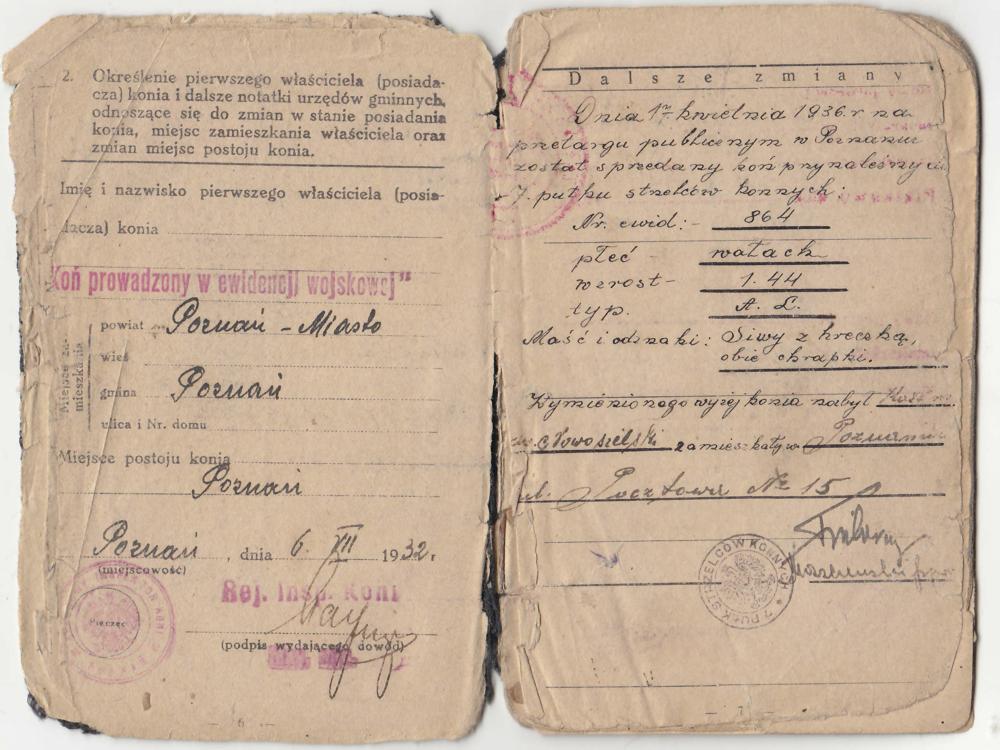 2. Określenie pierwszego właściciela (posiada-
cza) konia i dalsze notatki urzędów gminnych,
odnoszące się do zmian w stanie posiadania
konia, miejsc zamieszkania właściciela oraz
zmian miejsc postoju konia.
Imię i nazwisko pierwszego właściciela (posia-
dacza) konia
Koń prowadzony w ewidencji wojskowej"
Miejsce za-
mieszkania
powiat Poznań - Miasto
wieś
gmina Poznań
ulica i Nr. domu
Miejsce postoju konia
Poznań
Poznań, dnia 6. VII 1932r.
(miejscowość)
Rej. Insp. Koni
Pieczęć
(podpis wydającego dowód)
— 6 —
Dalsze zmiany
Dnia 17 kwietnia 1936.r na
przetargu publicznym w Poznaniu
został sprzedany koń przynależny do
7. pułku strzelców konnych:
Nr. ewid: - 864
płeć - wałach
wzrost - 1.44
typ. A. L.
Maść i odznaki: Siwy z hreczką,
obie chrapki.
Wymienionego wyżej konia nabył
Nowosielski zamieszkały w Poznaniu
ul. Pocztowa № 15
7 PUŁK STRZELCÓW KONNYCH
— 7 —